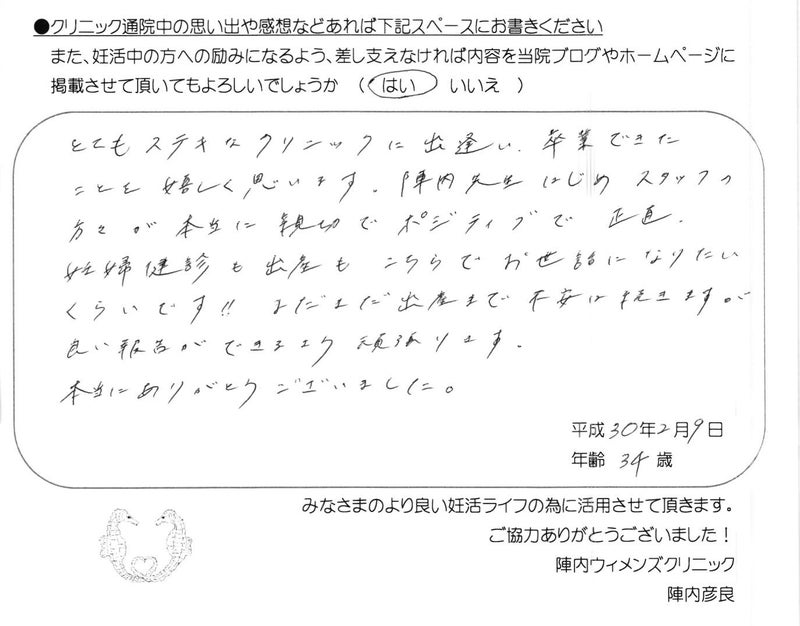 ●クリニック通院中の思い出や感想などあれば下記スペースにお書きください
また、妊活中の方への励みになるよう、差し支えなければ内容を当院ブログやホームページに
掲載させて頂いてもよろしいでしょうか （ はい いいえ ）
とてもステキなクリニックに出逢い、卒業できた
ことを嬉しく思います。陣内先生はじめスタッフの
方々が本当に親切でポジティブで正直、
妊婦健診も出産もこちらでお世話になりたい
くらいです!! まだまだ出産まで不安は続きますが
良い報告ができるよう頑張ります。
本当にありがとうございました。
平成30年2月9日
年齢 34 歳
みなさまのより良い妊活ライフの為に活用させて頂きます。
ご協力ありがとうございました！
陣内ウィメンズクリニック
陣内彦良